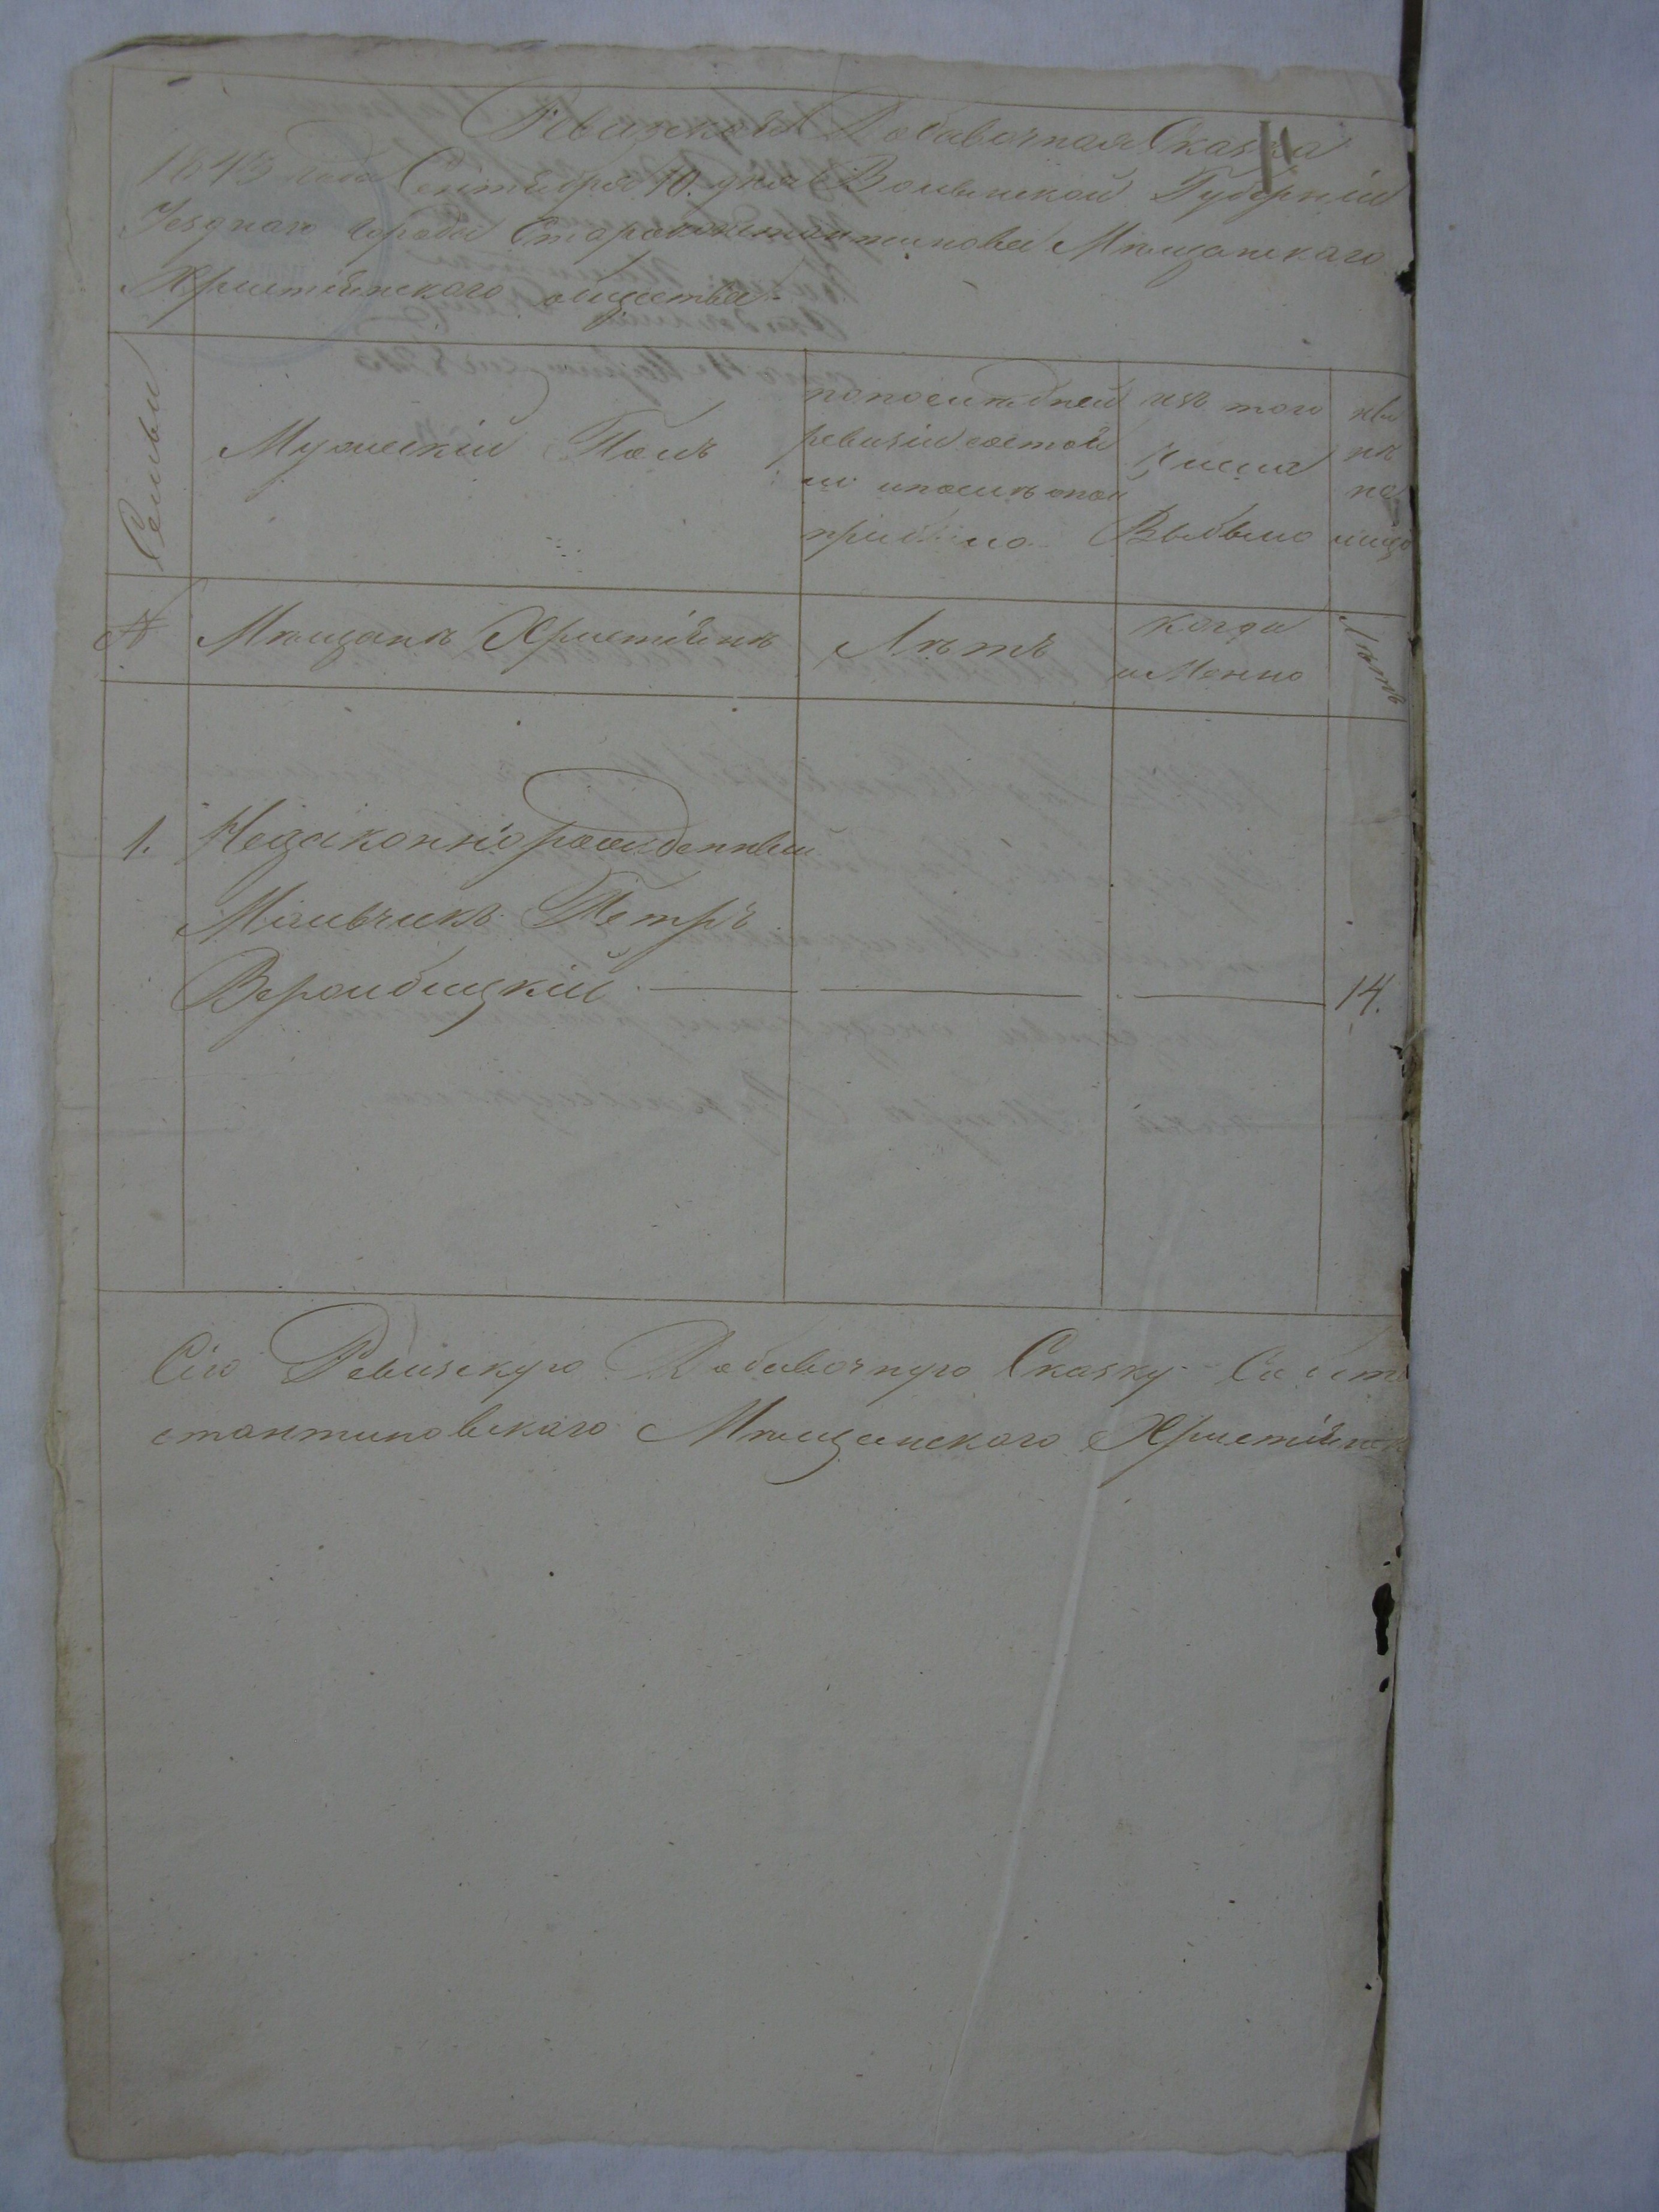 Ревизская Добавочная Сказка
1843 года Сентября 10 дня Волынской Губерніи
Уезднаго города Староконстантинова Мѣщанскаго
Христіянского общества
Семьи
Мужескій Полъ
попослѣдней
ревизіи состоя
ло ипослѣ оной
прибыло
изъ того
Числа
Выбыло
ны
нѣ
на
лицо
№
Мѣщанъ Христіянъ
Лѣтъ
когда
имЯнно
Лѣтъ
1.
Незаконнорожденный
Мальчикъ Петръ
Вержбицкій
14.
Сію Ревизскую Добавочную Сказку
стантиновскаго Мѣщанского Христіянск